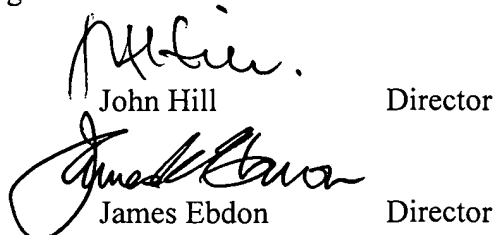 John Hill Director
James Ebdon Director